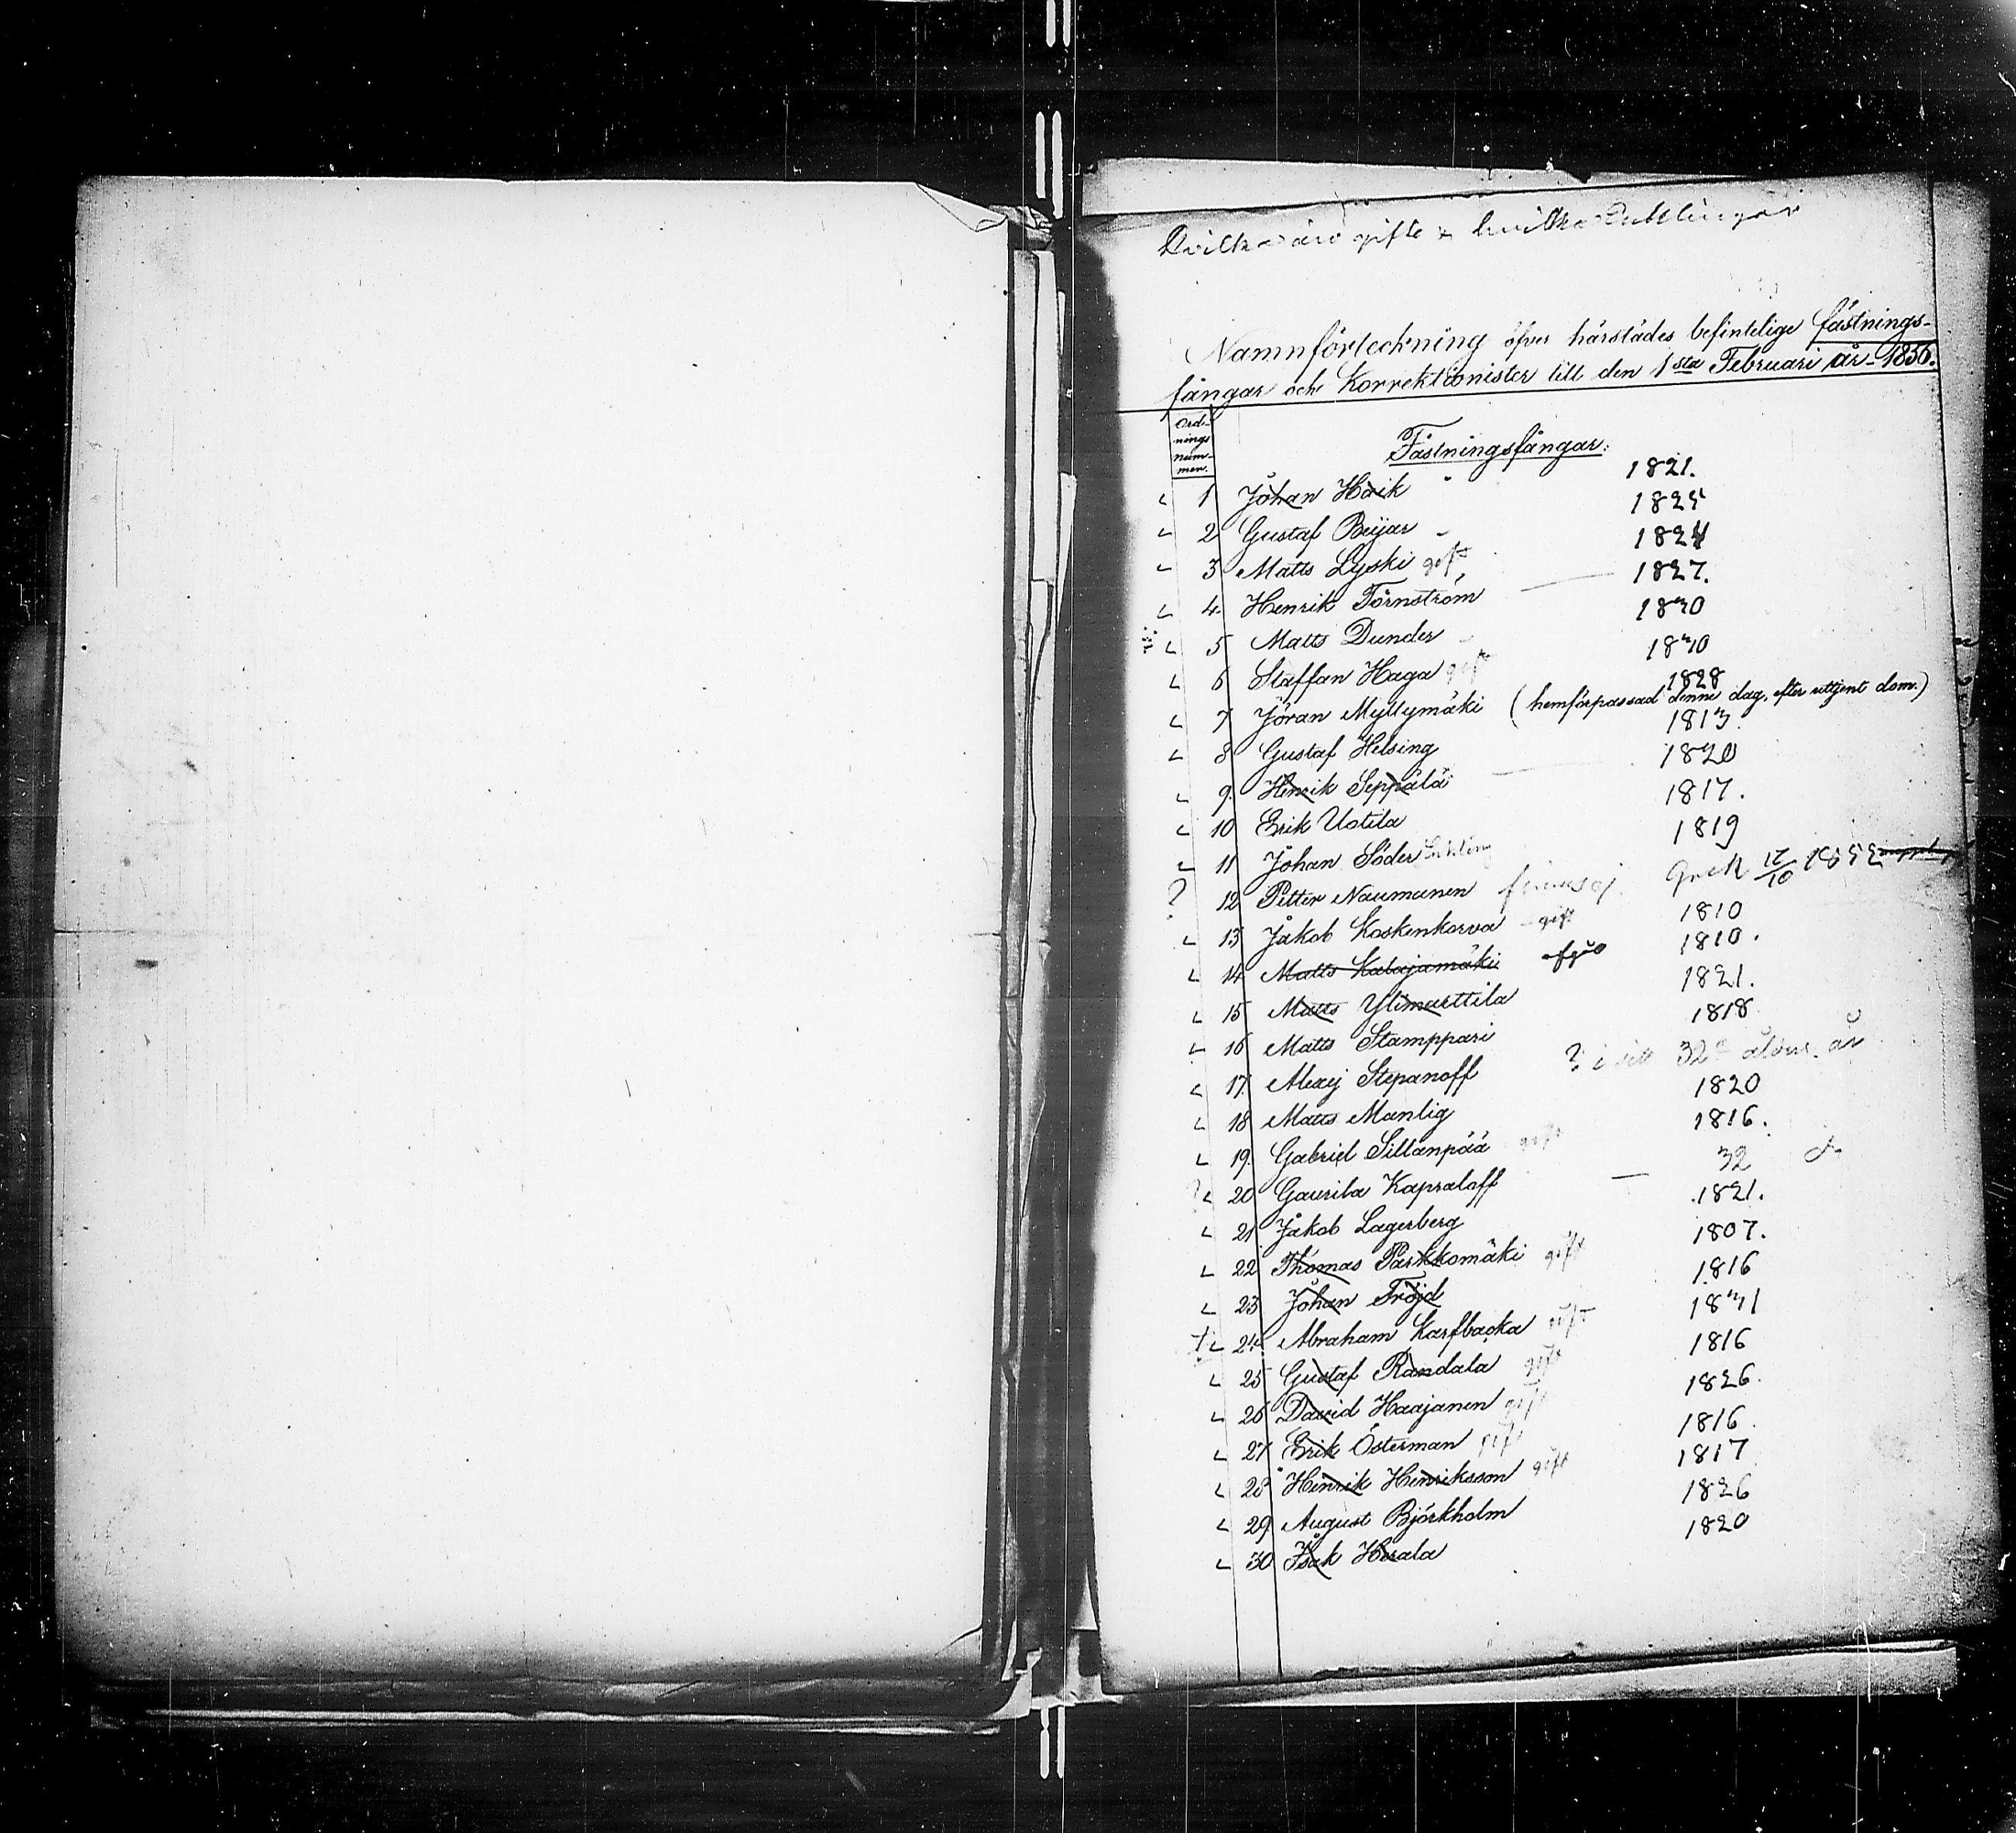 Hvilka äro gifte & hvilka Enklingar
Namnförteckning öfver härstädes befintelige fästnings-
fångar och Korrektionister till den 1sta Februari år 1856.
Ord-
nings
num-
mer.
Fästningsfångar:
1 Johan Haik 1821.
2 Gustaf Beijar 1825
3 Matts Lyski gift 1824
4 Henrik Törnström 1827.
5 Matts Dunder 1830
6 Staffan Haga gift 1830
7 Jöran Myllymäki (hemförpassad denne dag, efter uttjent dom.) 1828
8 Gustaf Helsing 1813
9. Henrik Seppälä 1820
10 Erik Uotila 1817.
11 Johan Söder Enkling 1819
12 Petter Naumanen finnes ej 12/10 1852
13 Jakob Koskenkorva gift 1810
14 Matts Kalajamäki 1810.
15 Matts Ylimarttila 1821.
16 Matts Stamppari 1818
17. Alexej Stepanoff ? i sitt 32 ålders år
18 Matts Manlig 1820
19. Gabriel Sillanpää gift 1816.
20 Gaurila Kapraloff 32 år
21 Jakob Lagerberg 1821.
22 Thomas Parkkomäki gift 1807.
23 Johan Fröjd 1816
24 Abraham Karfbacka gift 1831
25 Gustaf Randala gift 1816
26 David Haajanen gift 1826
27 Erik Österman gift 1816
28 Henrik Henriksson gift 1817
29 August Björkholm 1826
30 Isak Herala 1820